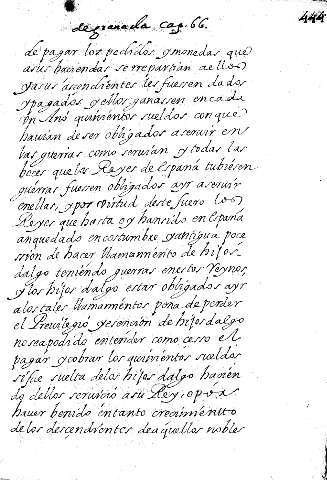 de granada cap. 66.
444
de pagar los pedidos y monedas que
a sus haciendas se rrepartian a ellos
y a sus ascendientes les fuesen dados
y pagados y ellos ganassen en cada
vn Ano quinientos sueldos con que
hauian de ser obligados a seruir en
las guerras como seruian y todas las
veces que los Reyes de España tubiesen
guerras fuesen obligados a yr a seruir
en ellas, y por virtud deste fuero los
Reyes que hasta oy han sido en España
an quedado en costumbre y antigua pose
ssion de hacer llamamiento de hijos
dalgo teniendo guerras en estos Reynos,
y los hijos dalgo estar obligados a yr
a los tales llamamientos pena de perder
el Preuilegio y esencion de hijos dalgo
no se a podido entender como ceso el
pagar y cobrar los quinientos sueldos
si fue suelta de los hijos dalgo hacien
do dellos seruicio a su Rey, o por
hauer benido en tanto crecimiento
de los descendientes de aquellos nobles